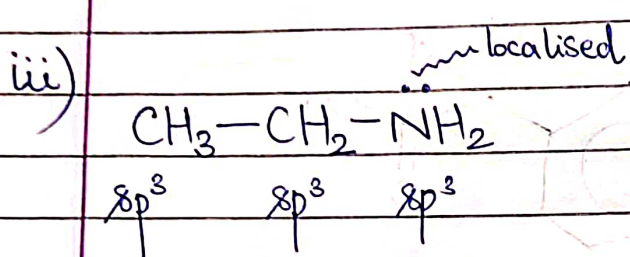 localised
iii)
CH₃—CH₂—N̈H₂
sp³ sp³ sp³